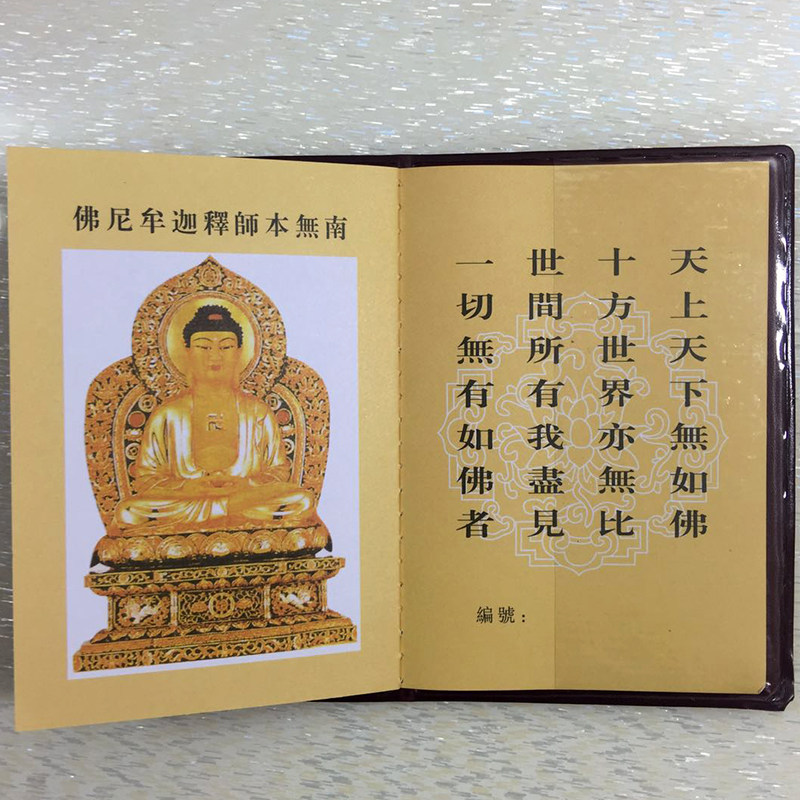 南無本師釋迦牟尼佛
天上天下無如佛
十方世界亦無比
世間所有我盡見
一切無有如佛者
編號：